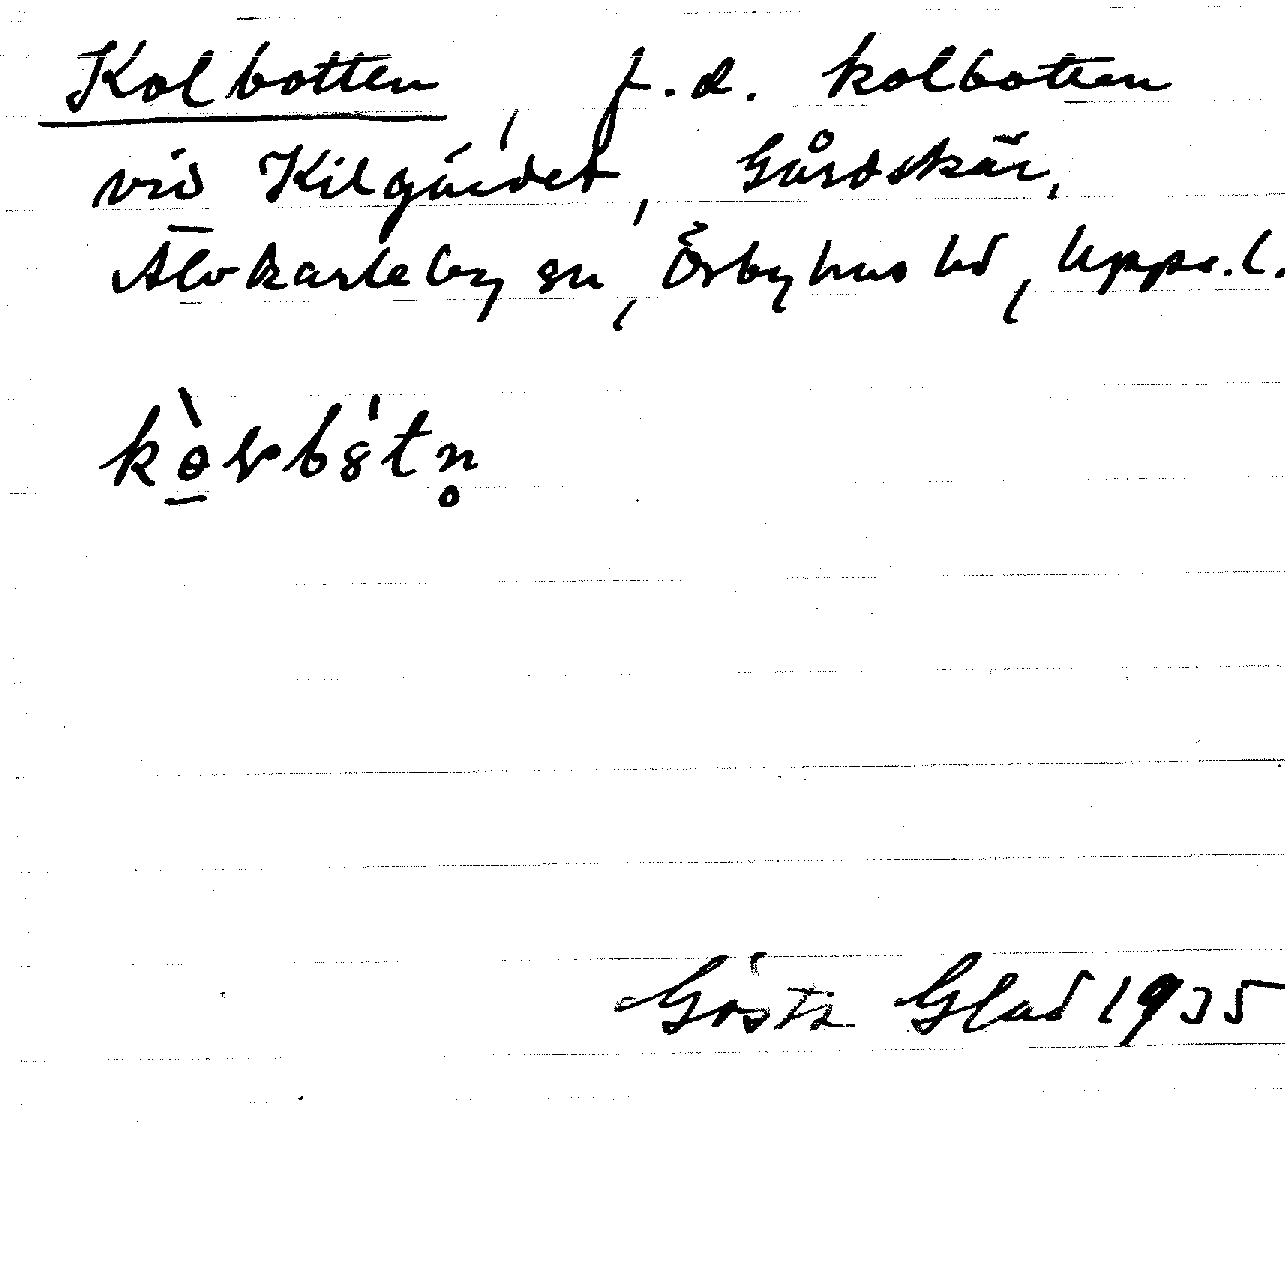 Kolbotten, f.d. kolbotten
vid Kilgärdet, Gårdskär,
Älvkarleby sn, Örbyhus hd, Uppl.
Gösta Glad 1935